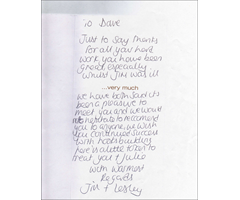 To Dave
Just to say thanks
for all your hard
work you have been
great especially
whilst Jim was ill
...very much
we have both said its
been a pleasure to
meet you and we would
not hesitate to recomend
you to anyone, we wish
you continued success
with
here is a little token to
treat you & Julie
with warmest
Regards
Jim & Lesley